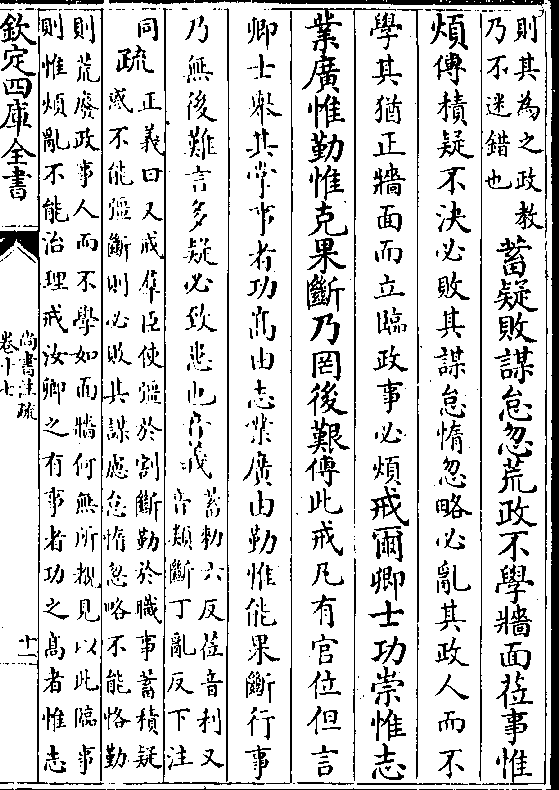 則其為之政教
乃不迷錯也
蓄疑敗謀怠忽荒政不學牆面莅事惟
煩傳積疑不決必敗其謀怠惰忽略必亂其政人而不
學其猶正牆面而立臨政事必煩戒爾卿士功崇惟志
業廣惟勤惟克果斷乃罔後艱傳此戒凡有官位但言
卿士舉其掌事者功髙由志業廣由勤惟能果斷行事
乃無後難言多疑必致患也音義
蓄勅六反莅音利又
音類斷丁亂反下注
同
疏
正義曰又戒羣臣使彊於割斷勤於職事蓄積疑
惑不能彊斷則必敗其謀慮怠惰忽略不能恪勤
則荒廢政事人而不學如面牆何無所覩見以此臨事
則惟煩亂不能治理戒汝卿之有事者功之髙者惟志
欽定四庫全書
尚書注疏
卷十七
十一